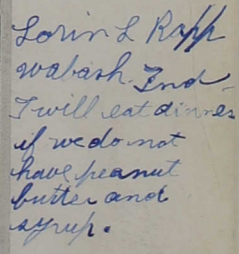 Lorin L Rapp
Wabash. Ind
I will eat dinner
if we do not
have peanut
butter and
syrup.